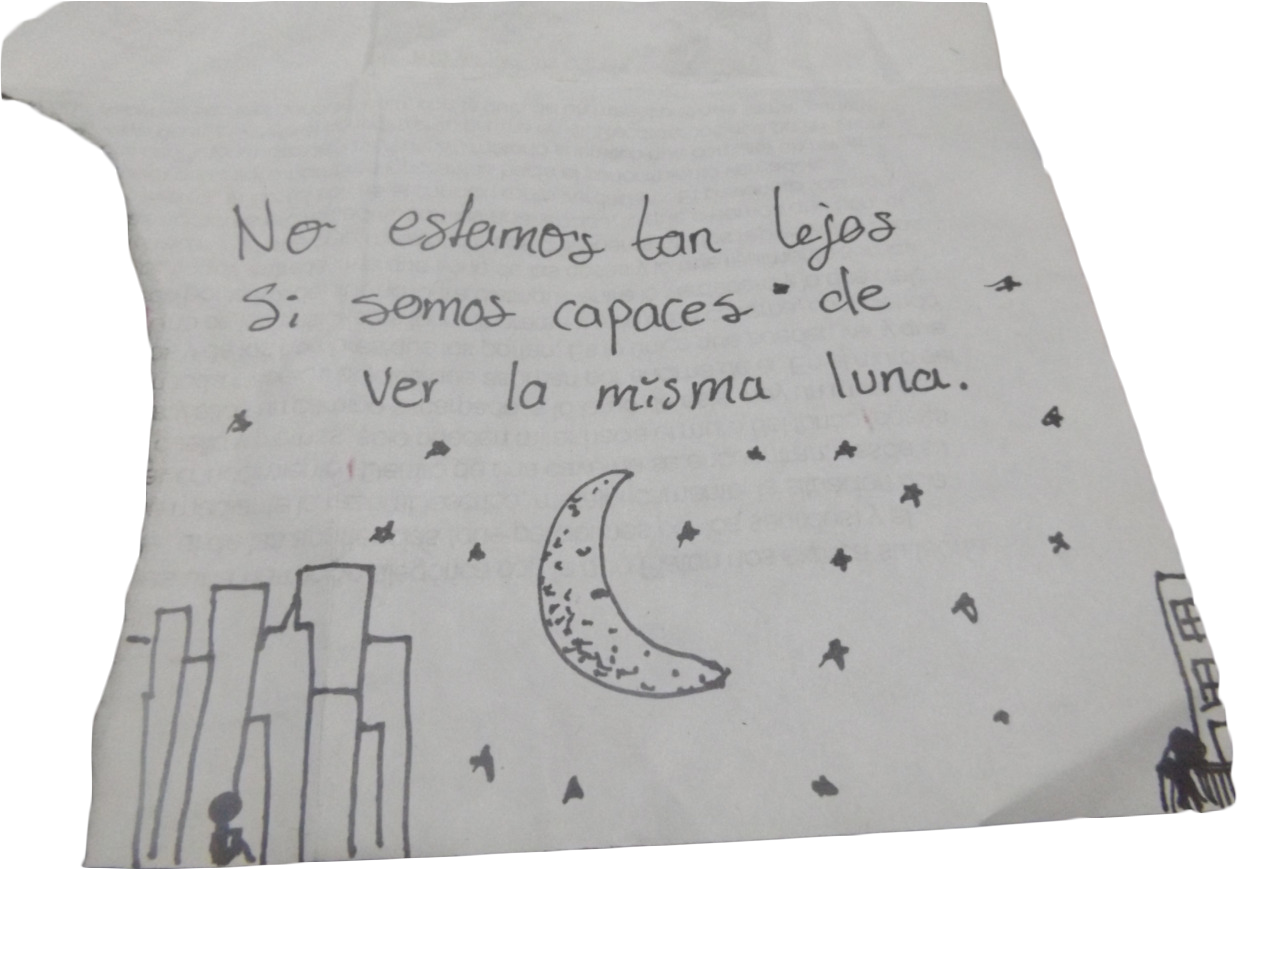 No estamos tan lejos
Si somos capaces de
ver la misma luna.